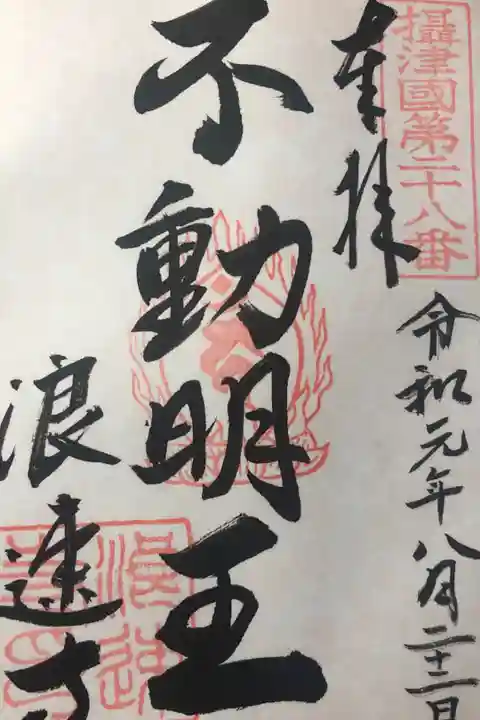 攝津國第二十八番
奉拝
令和元年八月二十二日
不動明王
浪速寺